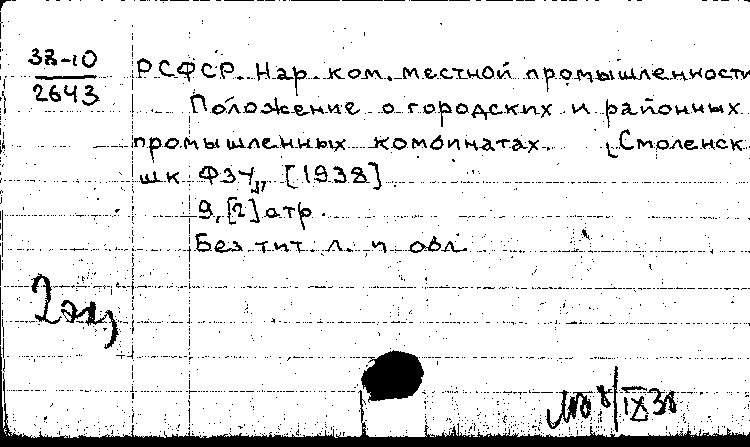 38-10
2643
РСФСР. Нар. ком. местной промышленности
Положение о городских и районных
промышленных комбинатах. [Смоленск
шк ФЗУ, [1938]
9, [2] стр.
Без тит. л. и обл.
2 экз
8/IX 38